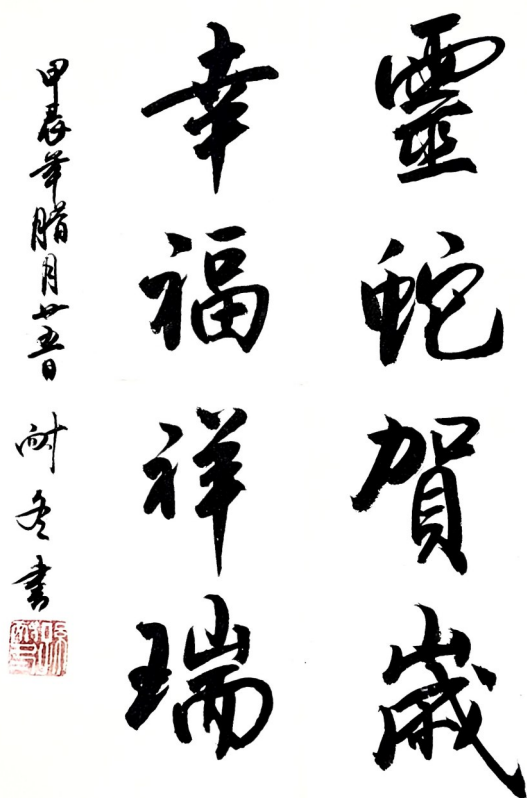 靈蛇賀歲
幸福祥瑞
甲辰年腊月廿五日 耐冬书